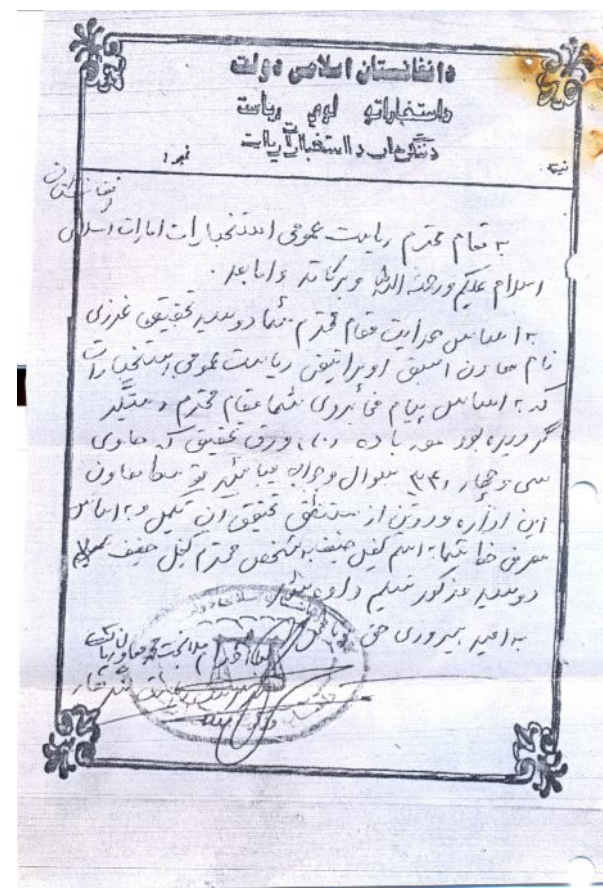 دافغانستان اسلامی دولت
داستخباراتو لوی ریاست
دننگرهار د استخباراتو ریاست
نمبر :
نیټه
افغانستان
به مقام محترم ریاست عمومی استخبارات امارات اسلامی
اسلام علیکم ورحمة الله وبرکاته واما بعد .
به اساس هدایت مقام محترم شما دوسیه تحقیقی غرزی
نام معاون اسبق اوپراتیفی ریاست عمومی استخبارات
که به اساس پیام مخابروی شما مقام محترم دستگیر
گردیده بود مورد باده (۱۰) ورق تحقیق که حاوی
سی و چهار (۳۴) سوال و جواب میباشد توسط معاون
این اداره و دو تن از مستنطق تحقیق آن تکمیل و به اساس
معرفی خط شما به اسم کفیل حنیف به شخص محترم کفیل حنیف
دوسیه مذکور تسلیم داده شد
به امید پیروزی حق